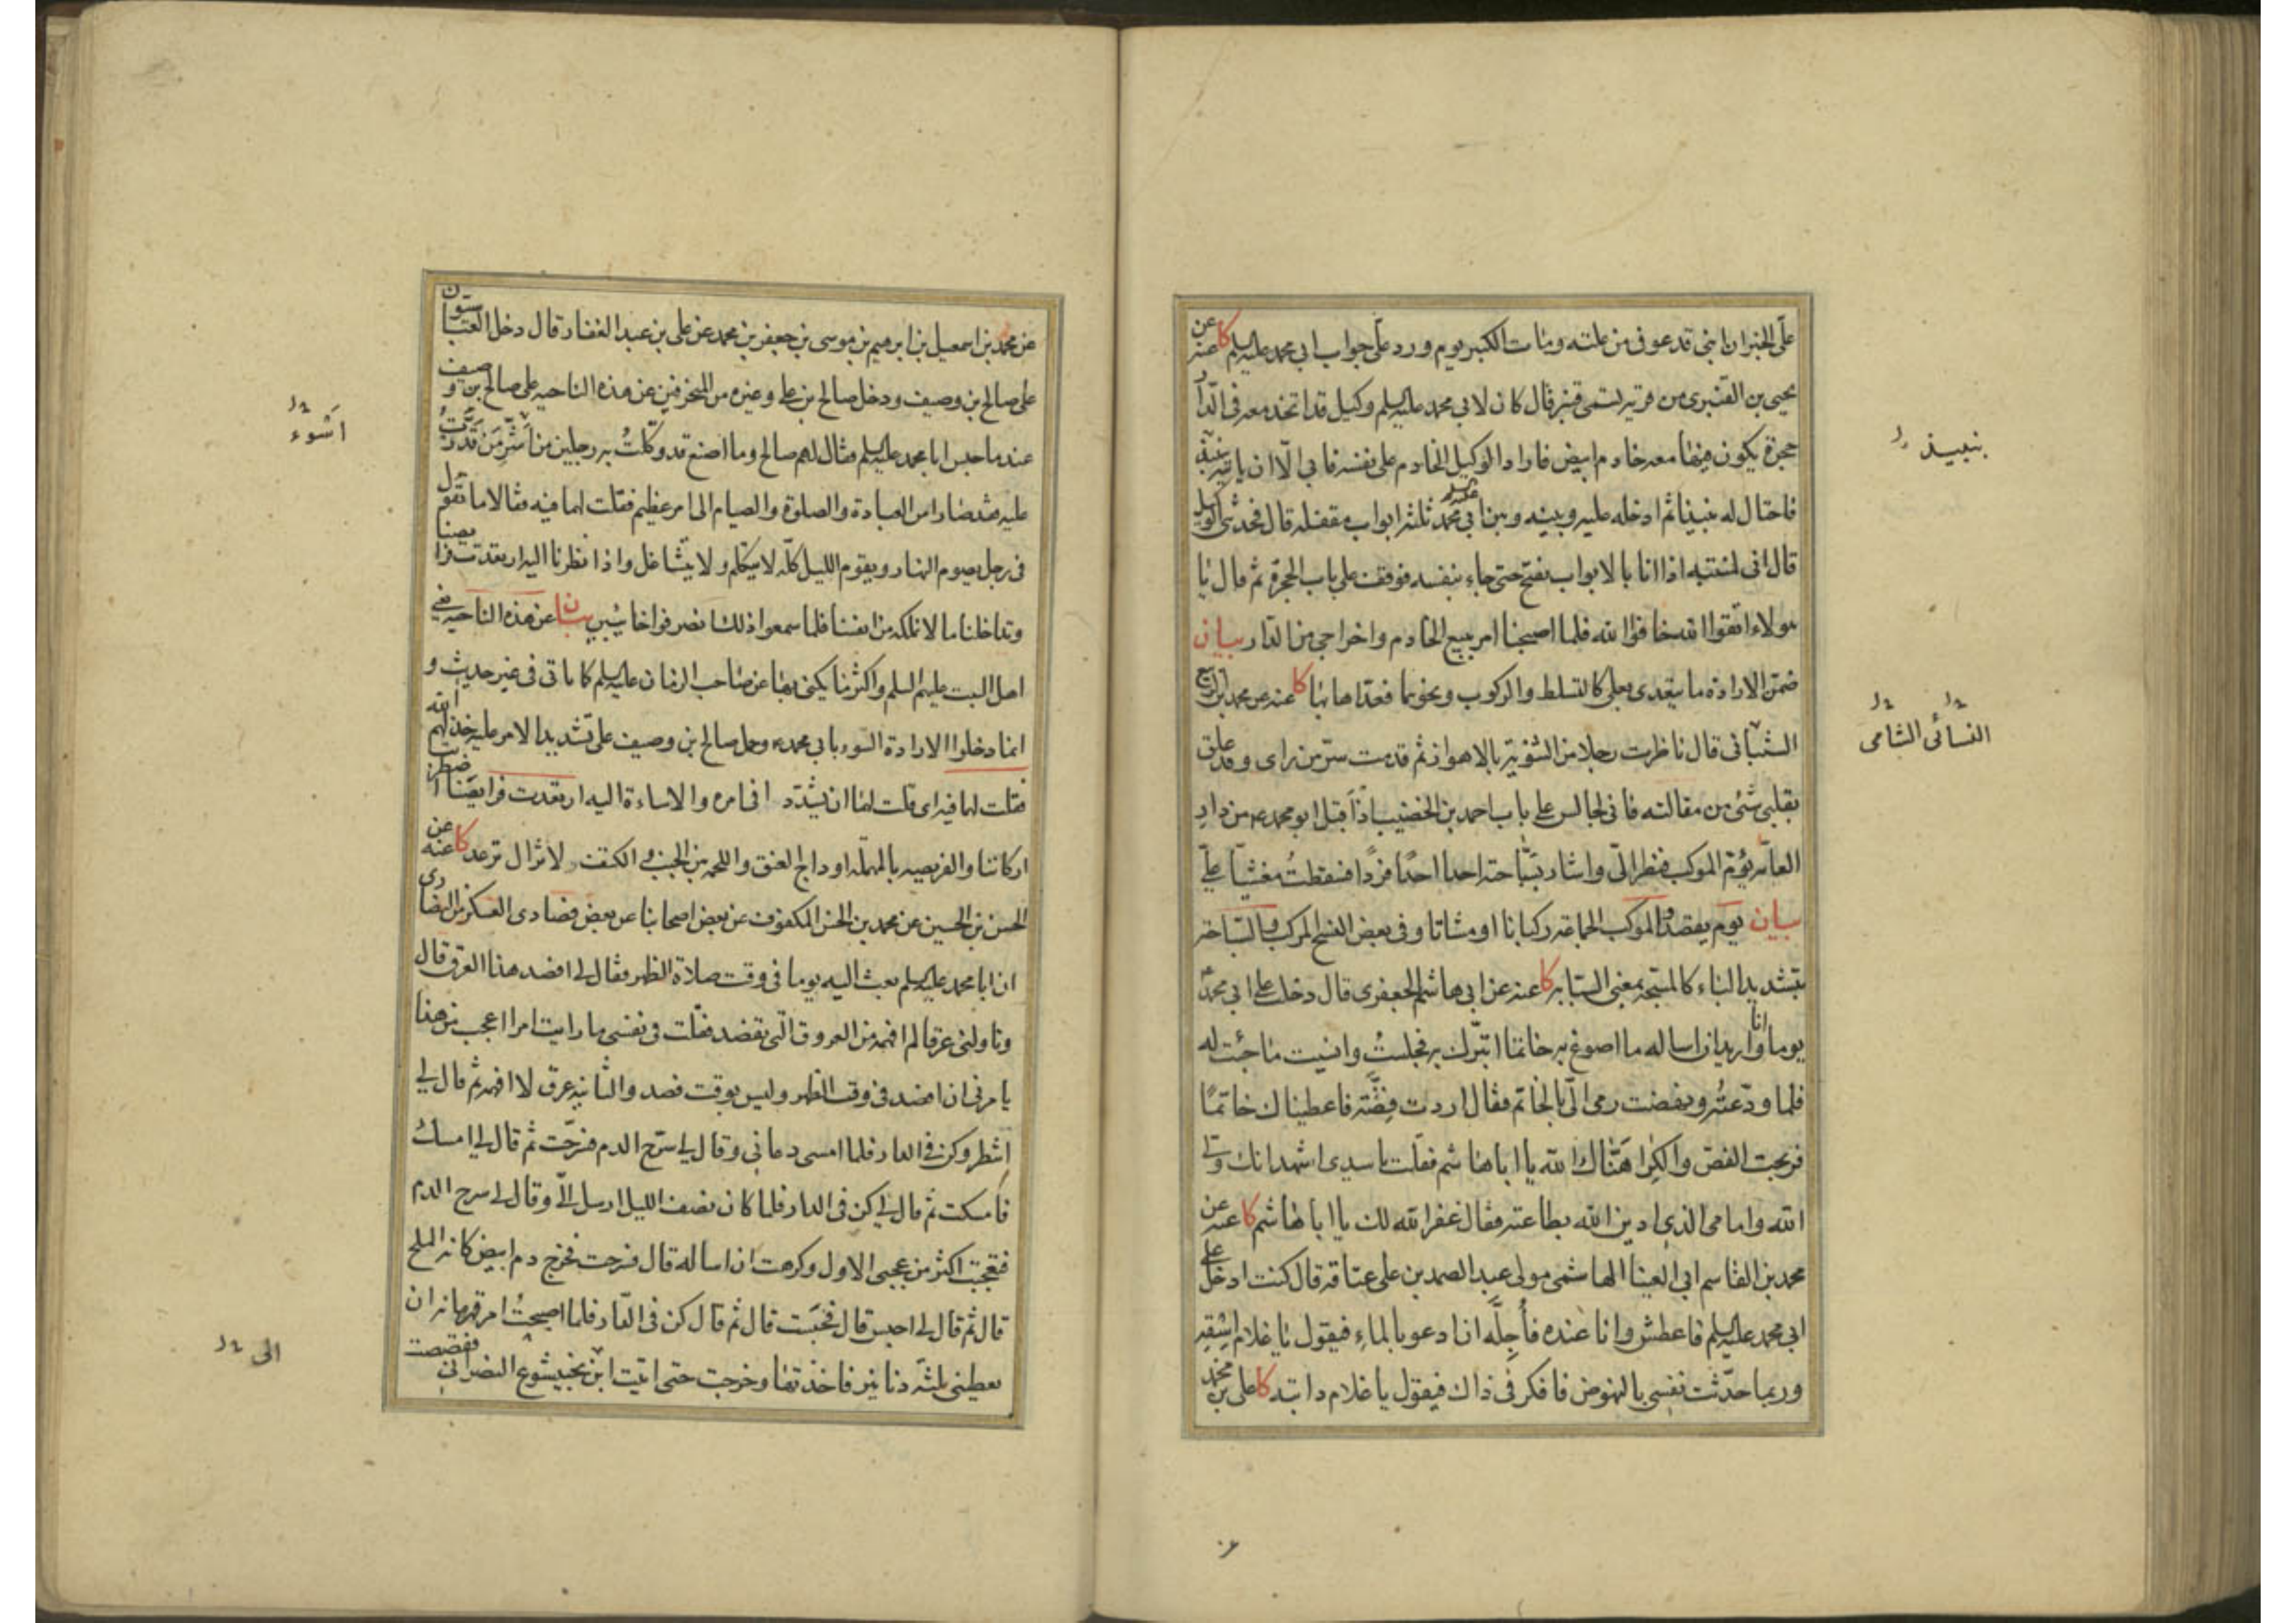 علی الخبر ان ابنی قد عوفی من علته ومات الکبیر یوم ورد علی جواب ابی محمد علیه السلم کا عنه عن
یحیی بن القنبری من قریة تسمی قنبر قال کان لابی محمد علیه السلم وکیل قد اتخذ معه فی الدار
حجرة یکون فیها معه خادم ابیض فاراد الوکیل الخادم علی نفسه فابی الّا ان یاتیه بنبیذ
فاحتال له بنبیذ ثم ادخله علیه وبینه وبین ابی محمد علیه السلم ثلثة ابواب مقفله قال فحدثنی الوکیل
قال انی لمنتبه اذا انا بالابواب تفتح حتی جاء بنفسه فوقف علی باب الحجرة ثم قال یا
هولاء اتقوا الله خافوا الله فلما اصبحنا امر ببیع الخادم واخراجی من الدار بیان
ضمّن الارادة ما یتعدی بعلی کالتسلط والرکوب ونحوهما فعدّاها بها کا عنه عن محمد بن الربیع
الشبانی قال ناظرت رجلا من الثنویة بالاهواز ثم قدمت سرّ من رای وقد علق
بقلبی شئ من مقالته فانی لجالس علی باب احمد بن الخضیب اذ اَقبل ابو محمد ع من دار
العامّه یؤمّ الموکب فنظر الیّ واشار بسبّاحته احدا احدًا فردًا فسقطتُ مغشیّا علیّ
بیان یوم یقصد والموکب الجماعه رکبانا او مشاتا وفی بعض النسخ المرکب والسّباحه
بتشدید الباء کالمسبّحة بمعنی السبابه کا عنه عن ابی هاشم الجعفری قال دخلت علی ابی محمد ع
یوما وانا ارید ان اساله ما اصوغ به خاتما اتبرّک به فجلستُ وانسیت ما جئت له
فلما ودّعتُه ونهضت رمی الیّ بالخاتم فقال اردت فِضّة فاعطیناک خاتمًا
فربحت الفصّ والکِرا هَنّاک الله یا اباهاشم فقلت یا سیدی اشهد انک ولی
الله وامامی الذی ادین الله بطاعته فقال غفر الله لک یا اباهاشم کا عنه عن
محمد بن القاسم ابی العینا الهاشمی مولی عبد الصمد بن علی عتاقه قال کنت ادخل علی
ابی محمد علیه السلم فاعطش وانا عنده فأُجِلّه ان ادعو بالماء فیقول یا غلام اسْقِه
وربما حدّثت نفسی بالنهوض فافکر فی ذاک فیقول یا غلام دابته کا علی بن محمد
بنبیذ
النسائی الشامی
عن محمد بن اسمعیل بن ابرهیم بن موسی بن جعفر بن محمد عن علی بن عبد الغفار قال دخل العباسیون
علی صالح بن وصیف ودخل صالح بن علی وغیره من المنحرفین عن هذه الناحیه علی صالح بن وصیف
عند ما حبس ابا محمد علیه السلم فقال لهم صالح وما اصنع قد وکّلتُ به رجلین من اَشرّ مَن قَدَرتُ
علیه فقد صارا من العبادة والصلوة والصیام الی امر عظیم فقلت لهما ما فیه فقالا ما تقول
فی رجل یصوم النهار ویقوم اللیل کلّه لا یتکلّم ولا یتشاغل واذا نظرنا الیه ارتعدت فرایصنا
وتداخلنا ما لا نملکه من انفسنا فلما سمعوا ذلک انصرفوا خایبین بیان عن هذه الناحیه یعنی
اهل البیت علیهم السلم واکثر ما یکنی بها عن صاحب الزمان علیه السلم کما یاتی فی غیر حدیث و
انما دخلوا الارادة السوء بابی محمد ع وحمل صالح بن وصیف علی تشدید الامر علیه خذلهم الله
فقلت لهما فیه ای قلت لهما ان یشدّدا فی امره والاساءة الیه ارتعدت فرایصنا اضطربت
ارکاننا والفریصه بالمهمله اوداج العنق واللحمه بین الجنب والکتف لا تزال ترعد کا عنه عن
الحسن بن الحسین عن محمد بن الحسن المکفوف عن بعض اصحابنا عن بعض فصادی العسکر من النصاری
ان ابا محمد علیه السلم بعث الیه یوما فی وقت صلاة الظهر فقال لی افصد هذا العرق قال
وناولنی عرقا لم افهمه من العروق الّتی تفصد فقلت فی نفسی ما رایت امرا اعجب من هذا
یامرنی ان افصد فی وقت الظهر ولیس بوقت فصد والثانیه عرق لا افهمه ثم قال لی
انتظر وکن فی الدار فلما امسی دعانی وقال لی سرّح الدم فسرّحت ثم قال لی امسک
فامسکت ثم قال لی کن فی الدار فلما کان نصف اللیل ارسل الیّ وقال لی سرح الدم
فتعجبت اکثر من عجبی الاول وکرهت ان اساله قال فسرحت فخرج دم ابیض کانه الملح
قال ثم قال لی احبس قال فحَبَست قال ثم قال کن فی الدّار فلما اصبحتُ امر قهرمانه ان
یعطینی ثلثة دنانیر فاخذتها وخرجت حتی اتیت ابن بختیشوع النصرانی فقصصت
اَسْوء
الی